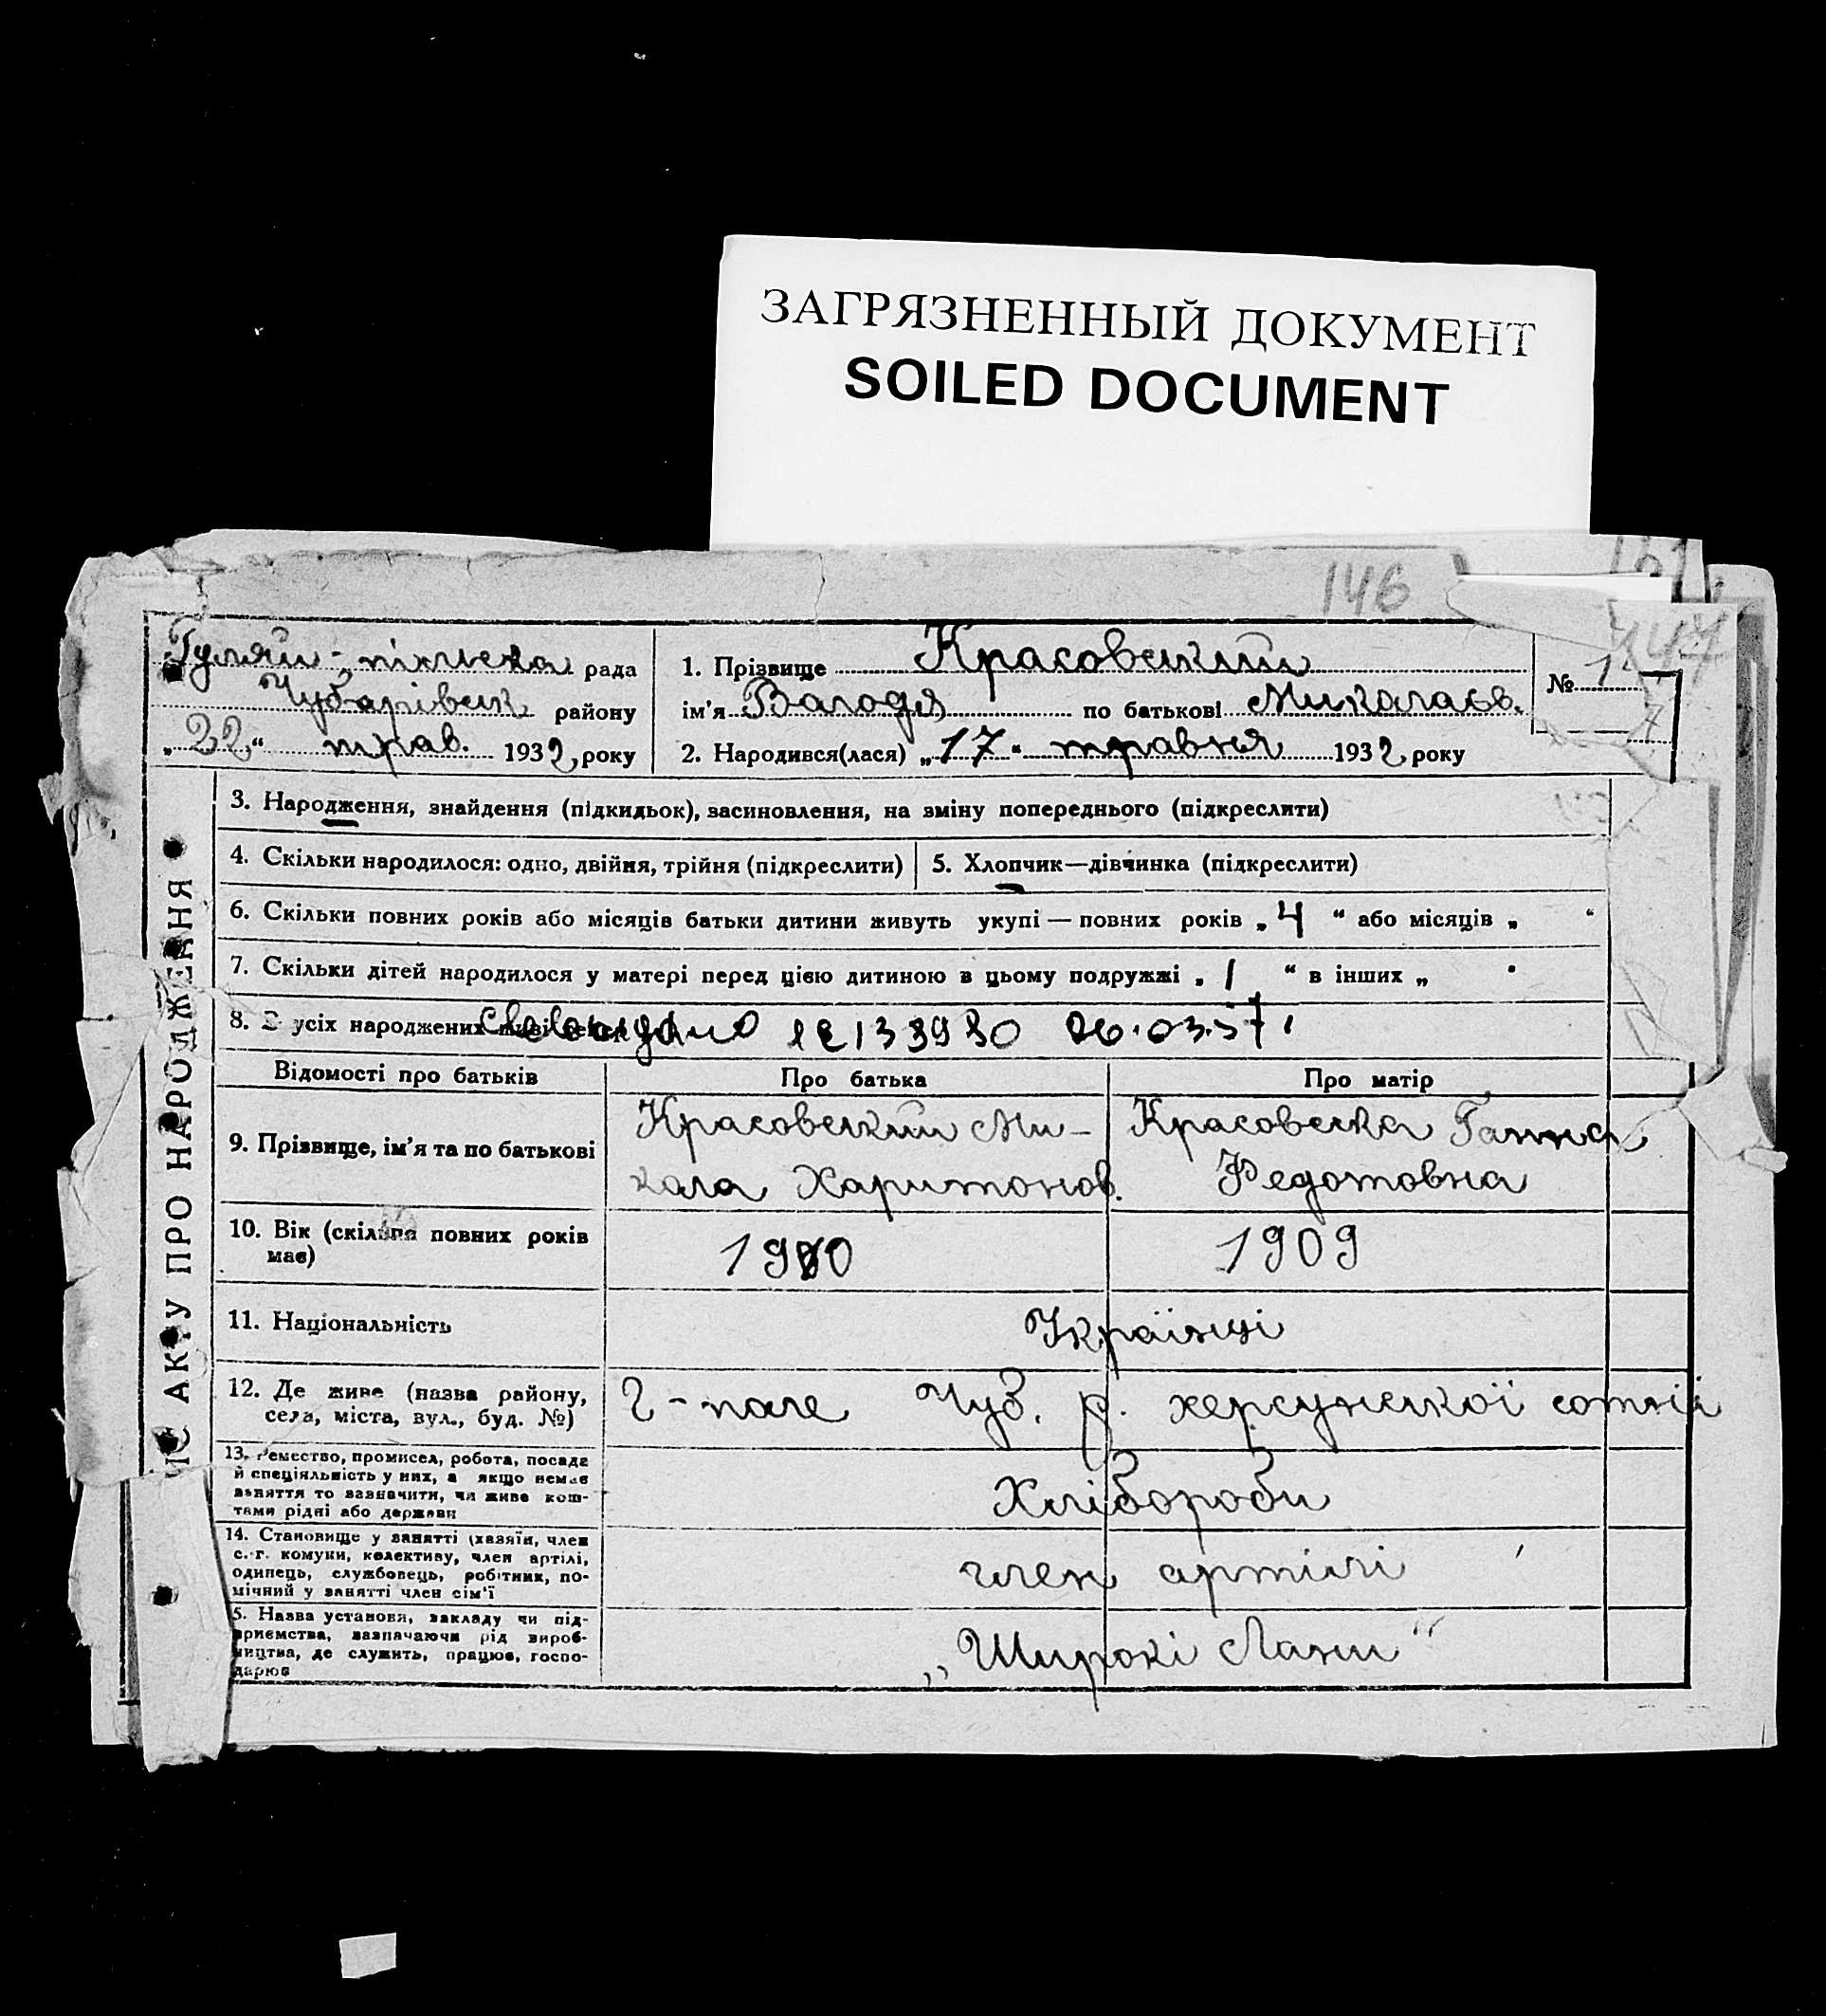 ЗАГРЯЗНЕННЫЙ ДОКУМЕНТ
SOILED DOCUMENT
146
Гуляй-пільська рада
Чубарівськ району
„22“ трав. 1932 року
1. Прізвище Красовський
ім'я Валодя по батькові Миколаєв.
2. Народився(лася) „17“ травня 1932 року
№ 1
3. Народження, знайдення (підкидьок), засиновлення, на зміну попереднього (підкреслити)
4. Скільки народилося: одно, двійня, трійня (підкреслити)
5. Хлопчик—дівчинка (підкреслити)
6. Скільки повних років або місяців батьки дитини живуть укупі — повних років „4“ або місяців „ “
7. Скільки дітей народилося у матері перед цією дитиною в цьому подружжі „1“ в інших „
8. З усіх народжених
26.03.57
ИС АКТУ ПРО НАРОДЖЕННЯ
Відомості про батьків
Про батька
Про матір
9. Прізвище, ім'я та по батькові
Красовський Ми-
кола Харитонов.
Красовська Ганна
Федотовна
10. Вік (скільки повних років
має)
1909
11. Національність
Українці
12. Де живе (назва району,
села, міста, вул., буд. №)
Г-поле Чуб. р. херсунської сотнії
13. Ремество, промисел, робота, посада
й спеціяльність у них, а якщо немає
заняття то зазначити, чи живе кош-
тами рідні або держави
Хлібороби
14. Становище у занятті (хазяїн, член
с.-г. комуни, колективу, член артілі,
одинець, службовець, робітник, по-
мічний у занятті член сім'ї
член артілі
5. Назва установи, закладу чи під-
приємства, зазначаючи рід вироб-
ництва, де служить, працює, госпо-
дарює
„Широкі Лани“